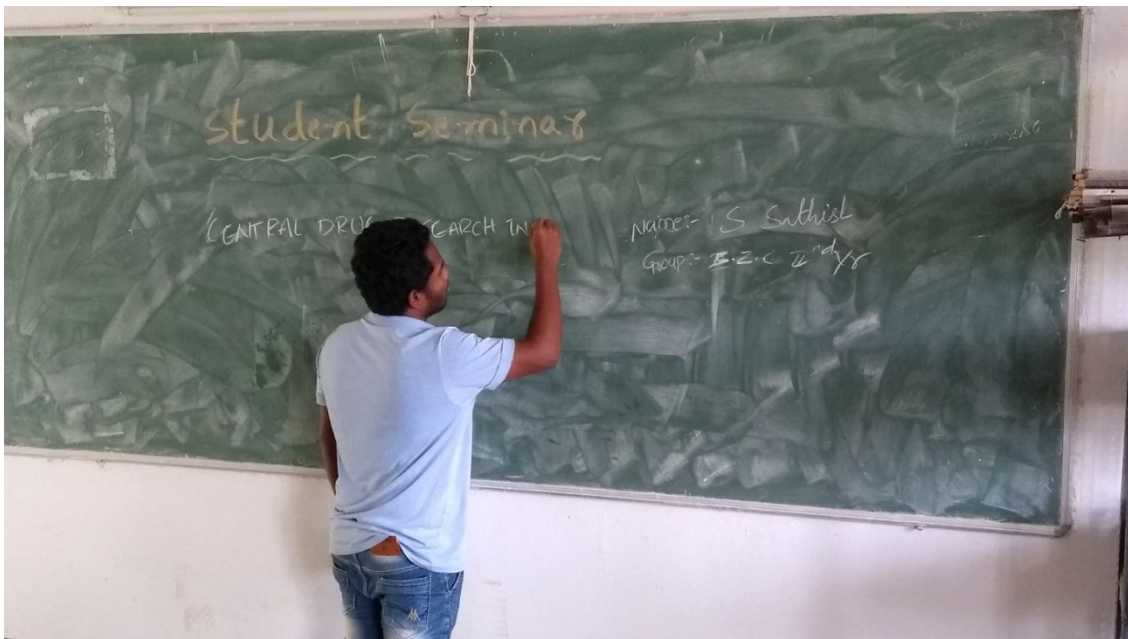 Student Seminar
CENTRAL DRUG RESEARCH IN
Name:- S. Sathish
Group:- B.Z.C IInd Yr